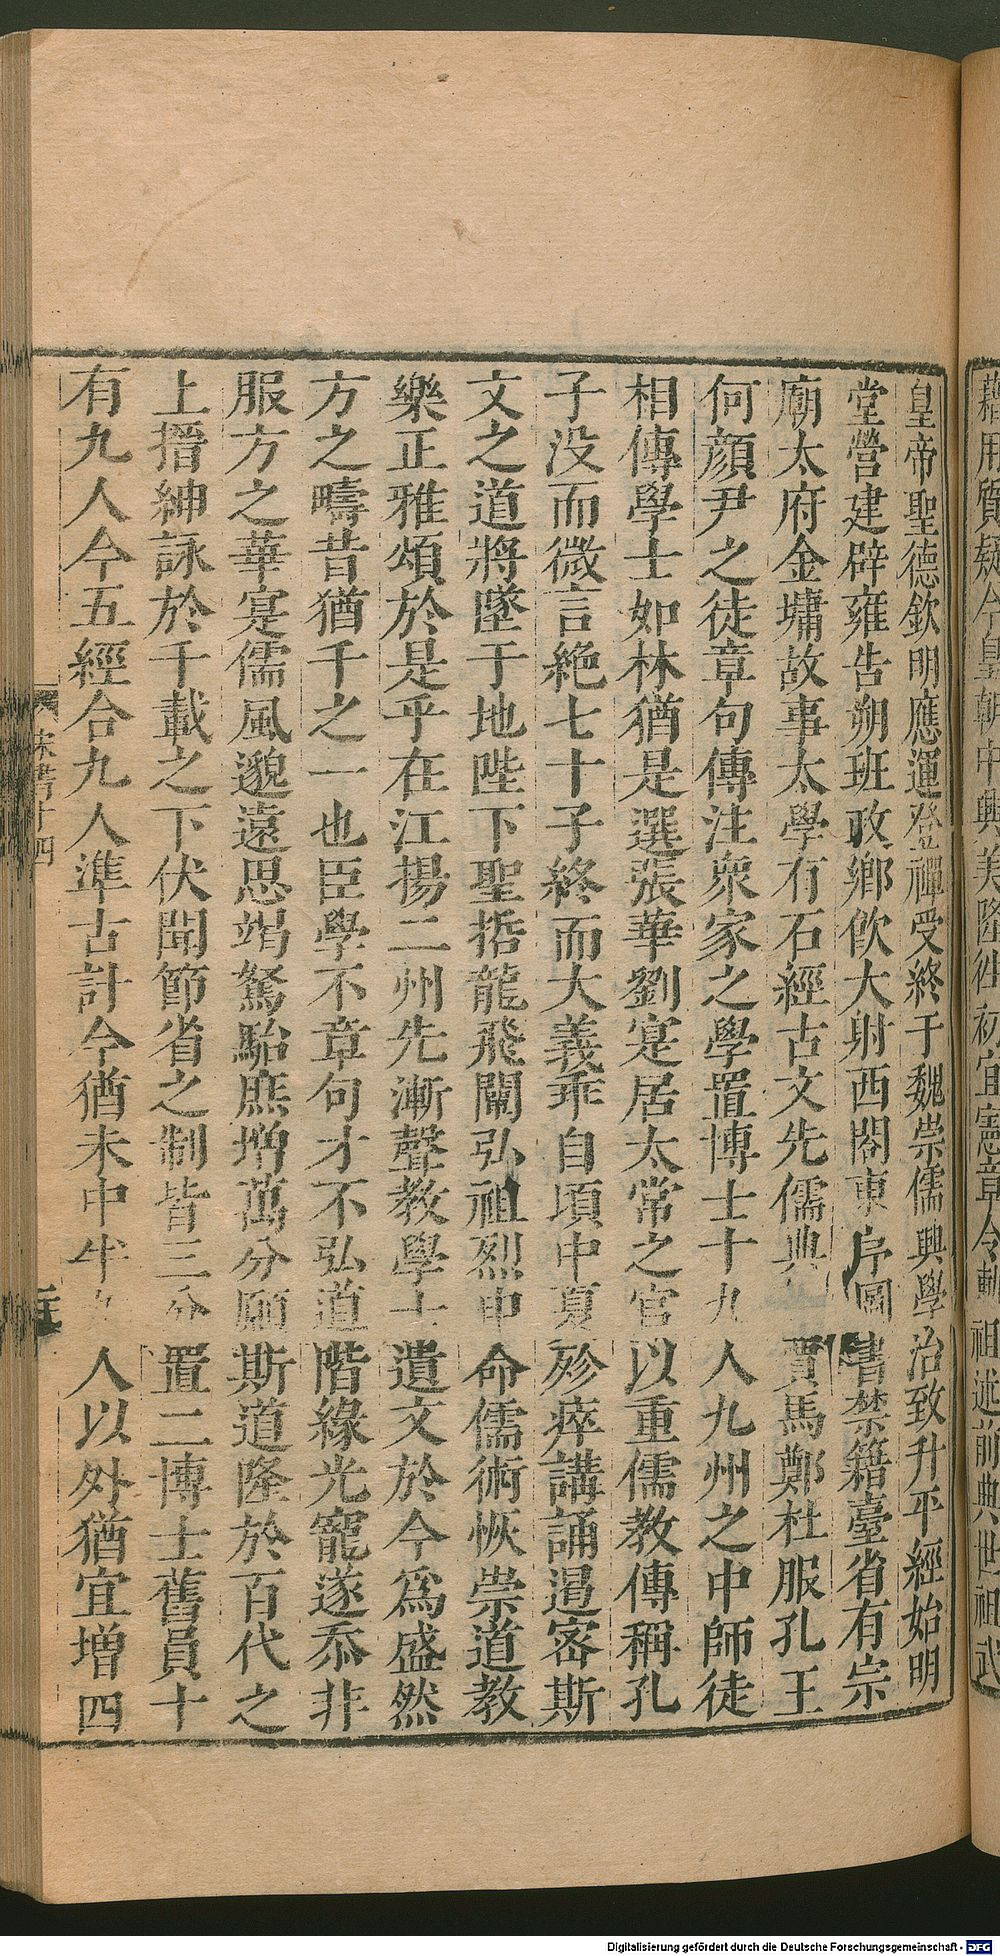 藉用質疑今皇朝中興美隆往初宜憲章令軌祖述前典世祖武
皇帝聖德欽明應運登禪受終于魏崇儒興學治致升平經始明
堂營建辟雍告朔班政鄉飲大射西閣東序圖書禁籍臺省有宗
廟太府金墉故事太學有石經古文先儒典賈馬鄭杜服孔王
何顏尹之徒章句傳注衆家之學置博士十九人九州之中師徒
相傳學士如林猶是選張華劉寔居太常之官以重儒教傳稱孔
子没而微言絶七十子終而大義乖自頃中夏殄瘁講誦遏密斯
文之道將墜于地陛下聖哲龍飛闡弘祖烈申命儒術恢崇道教
樂正雅頌於是乎在江揚二州先漸聲教學士遺文於今爲盛然
方之疇昔猶千之一也臣學不章句才不弘道階緣光寵遂忝非
服方之華寔儒風邈遠思竭駑駘庶增萬分願斯道隆於百代之
上搢紳詠於千載之下伏聞節省之制皆三分置二博士舊員十
有九人今五經合九人準古計今猶未中半九人以外猶宜增四
宋書十四
Digitalisierung gefördert durch die Deutsche Forschungsgemeinschaft - DFG